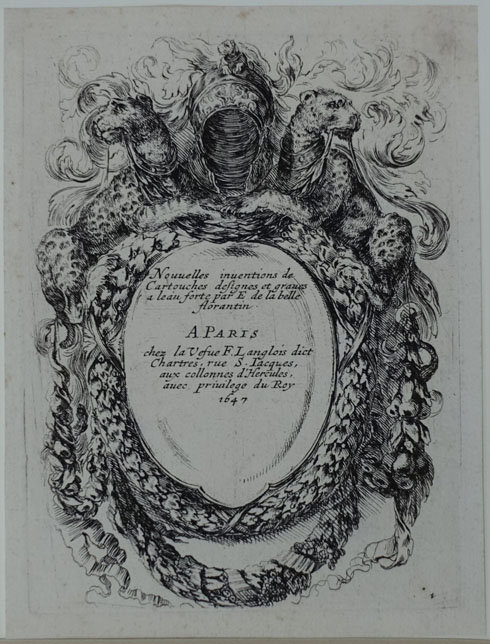 Nouuelles inuentions de
Cartouches deſignes et graues
a leau forte par E de la belle
florantin
A PARIS
chez la Vefue F. Langlois dict
Chartres, rue S. Iacques,
aux collonnes d'Hercules,
auec priuilege du Roy
1647